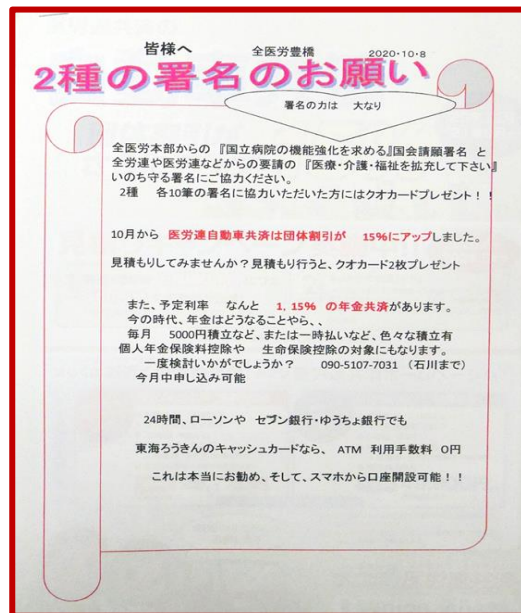 皆様へ 全医労豊橋 2020・10・8
2種の署名のお願い
署名の力は 大なり
全医労本部からの 『国立病院の機能強化を求める』国会請願署名 と
全労連や医労連などからの要請の 『医療・介護・福祉を拡充して下さい』
いのち守る署名にご協力ください。
2種 各10筆の署名に協力いただいた方にはクオカードプレゼント！！
10月から 医労連自動車共済は団体割引が 15%にアップしました。
見積もりしてみませんか？見積もり行うと、クオカード2枚プレゼント
また、予定利率 なんと 1，15% の年金共済があります。
今の時代、年金はどうなることやら、、
毎月 5000円積立など、または一時払いなど、色々な積立有
個人年金保険料控除や 生命保険控除の対象にもなります。
一度検討いかがでしょうか？ 090-5107-7031 （石川まで）
今月中申し込み可能
24時間、ローソンや セブン銀行・ゆうちょ銀行でも
東海ろうきんのキャッシュカードなら、 ATM 利用手数料 0円
これは本当にお勧め、そして、スマホから口座開設可能！！